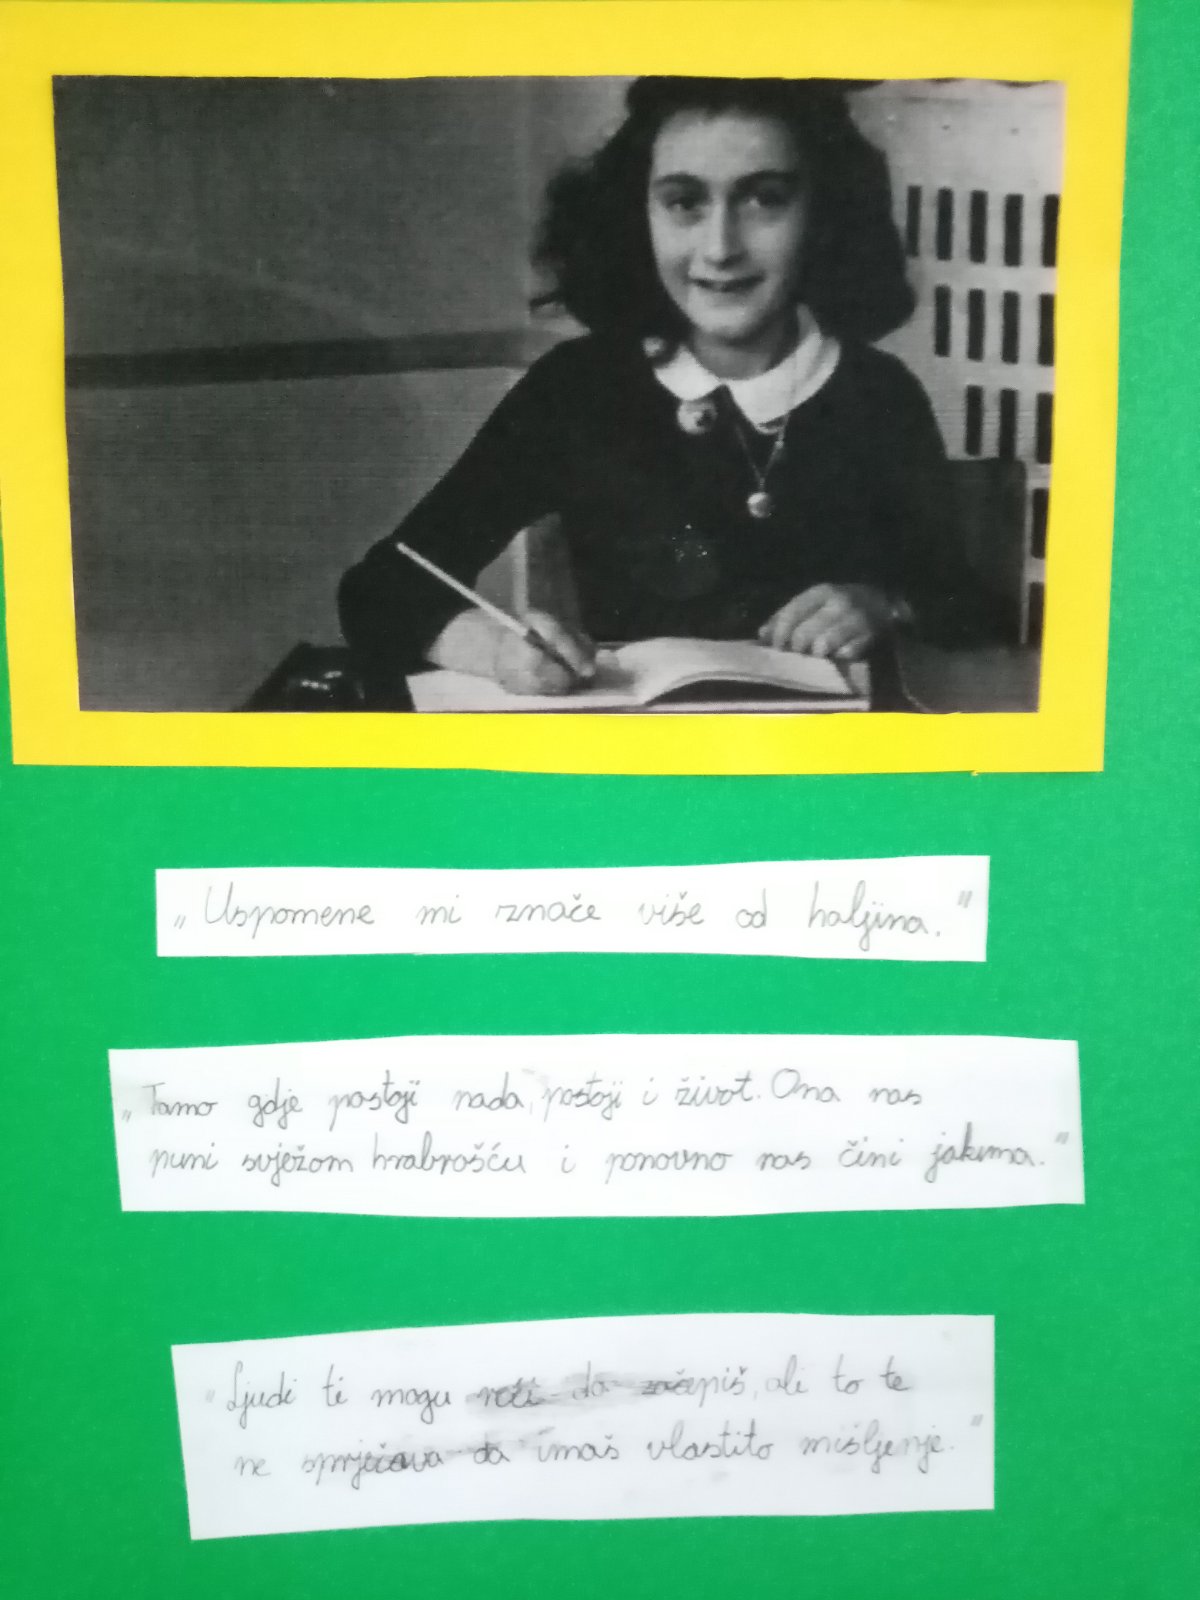 „Uspomene mi znače više od haljina."
„Tamo gdje postoji nada, postoji i život. Ona nas
puni svježom hrabrošću i ponovno nas čini jakima."
"Ljudi ti mogu reći da začepiš, ali to te
ne sprječava da imaš vlastito mišljenje."